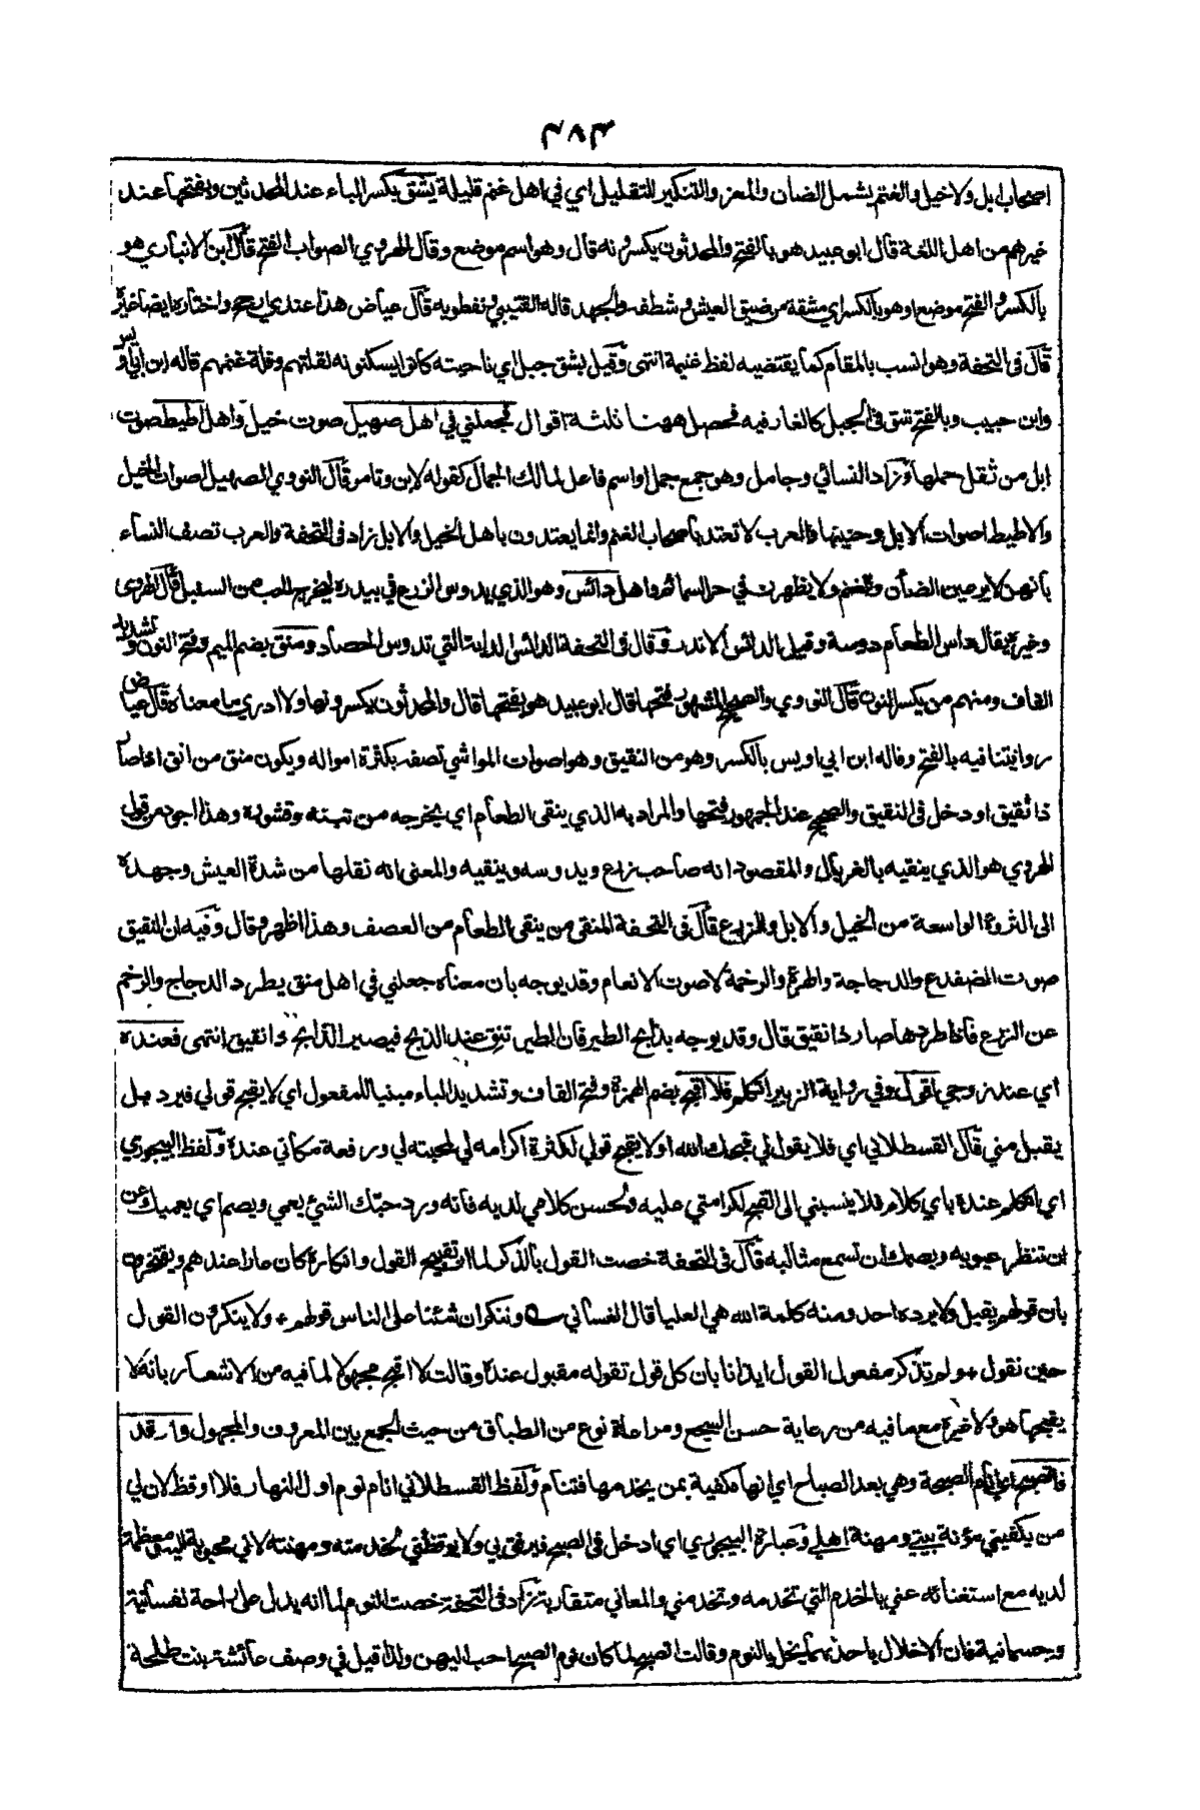 ٤٧٣
اصحاب ابل ولا خيل والغنم يشمل الضان والمعز والتنكير للتقليل اي في اهل غنم قليلة بشق بكسر الباء عند المحدثين وبفتحها عند
غيرهم من اهل اللغة قال ابو عبيد هو بالفتح والمحدثون يكسرونه قال وهو اسم موضع وقال الهروي الصواب الفتح قال ابن الانباري هو
بالكسر والفتح موضع وهو بالكسر اي مشقة من ضيق العيش وشظف والجهد قاله القتيبي ونفطويه قال عياض هذا عندي ارجح واختاره ايضا غيره
قال في التحفة وهو انسب بالمقام كما يقتضيه لفظ غنيمة انتهى وقيل بشق جبل اي ناحيته كانوا يسكنونه لقلتهم وقلة غنمهم قاله ابن ابي اويس
وابن حبيب وبالفتح شق في الجبل كالغار فيه فحصل ههنا ثلثة اقوال فجعلني في اهل صهيل صوت خيل واهل اطيط صوت
ابل من ثقل حملها وزاد النسائي وجامل وهو جمع جمل او اسم فاعل لمالك الجمال كقوله لابن وتامر وقال النووي الصهيل اصوات الخيل
والاطيط اصوات الابل وحنينها والعرب لا تعتد باصحاب الغنم وانما يعتدون باهل الخيل والابل زاد في التحفة والعرب تصف النساء
بانهن لا يرعين الضأن والغنم ولا يظهرن في حر السمائم واهل دائس وهو الذي يدوس الزرع في بيدره ليخرج الحب من السنبل قال الهروي
وغيره يقال داس الطعام دوسة وقيل الدائس الاندر وقال في التحفة الدائس الدابة التي تدوس الحصاد ومنق بضم الميم وفتح النون وتشديد
القاف ومنهم من يكسر النون قال النووي والصحيح المشهور فتحها قال ابو عبيد هو بفتحها قال والمحدثون يكسرونها ولا ادري ما معناه قال عياض
روايتنا فيه بالفتح وقاله ابن ابي اويس بالكسر وهو من النقيق وهو اصوات المواشي تصفه بكثرة امواله ويكون منق من انق اذا صار
ذا نقيق او دخل في النقيق والصحيح عند الجمهور فتحها والمراد به الذي ينقي الطعام اي يخرجه من تبنه وقشوره وهذا اجود من قول
الهروي هو الذي ينقيه بالغربال والمقصود انه صاحب زرع ويدوسه وينقيه والمعنى انه نقلها من شدة العيش وجهده
الى الثروة الواسعة من الخيل والابل والزرع قال في التحفة المنقي من ينقي الطعام من العصف وهذا اظهر وقال وفيه ان النقيق
صوت الضفدع والدجاجة والهرة والرخمة لا صوت الانعام وقد يوجه بان معناه جعلني في اهل منق يطرد الدجاج والرخم
عن الزرع فاذا طردها صار ذا نقيق قال وقد يوجه بذابح الطير فان الطير تنق عند الذبح فيصير الذابح ذا نقيق انتهى فعنده
اي عند زوجي اقول وفي رواية الزبير اتكلم فلا اقبح بضم الهمزة وفتح القاف وتشديد الباء مبنيا للمفعول اي لا يقبح قولي فيرد بل
يقبل مني قال القسطلاني اي فلا يقول لي قبحك الله او لا يقبح قولي لكثرة اكرامه لي لمحبته لي ورفعة مكاني عنده ولفظ البيجوري
اي اتكلم عنده باي كلام فلا ينسبني الى القبح لكرامتي عليه ولحسن كلامي لديه فانه ورد حبك الشئ يعمي ويصم اي يعميك عن
ان تنظر عيوبه ويصمك ان تسمع مثالبه قال في التحفة خصت القول بالذكر لما ان تقبيح القول وانكاره كان عارا عندهم ويفتخرون
بان قولهم يقبل ولا يرده احد ومنه كلمة الله هي العليا قال الغساني وننكر ان شئنا على الناس قولهم + ولا ينكرون القول
حين نقول + ولم تذكر مفعول القول ايذانا بان كل قول تقوله مقبول عنده وقالت لا اقبح مجهولا لما فيه من الاشعار بانه لا
يقبحها هو ولا غيره مع ما فيه من رعاية حسن السجع ومراعاة نوع من الطباق من حيث الجمع بين المعروف والمجهول وارقد
فاتصبح اي انام الصبحة وهي بعد الصباح اي انها مكفية بمن يخدمها فتنام ولفظ القسطلاني انام نوم اول النهار فلا اوقظ لان لي
من يكفيني مؤنة بيتي ومهنة اهلي وعبارة البيجوري اي ادخل في الصبح فيرفق بي ولا يوقظني لخدمته ومهنته لاني محبوبة اليه ومعظمة
لديه مع استغنائه عني بالخدم التي تخدمه وتخدمني والمعاني متقاربة زاد في التحفة خصت النوم لما انه يدل على راحة نفسانية
وجسمانية فان الاخلال باحدهما يخل بالنوم وقالت اتصبح لما كان نوم الصبح احب اليهن ولذا قيل في وصف عائشة بنت طلحة